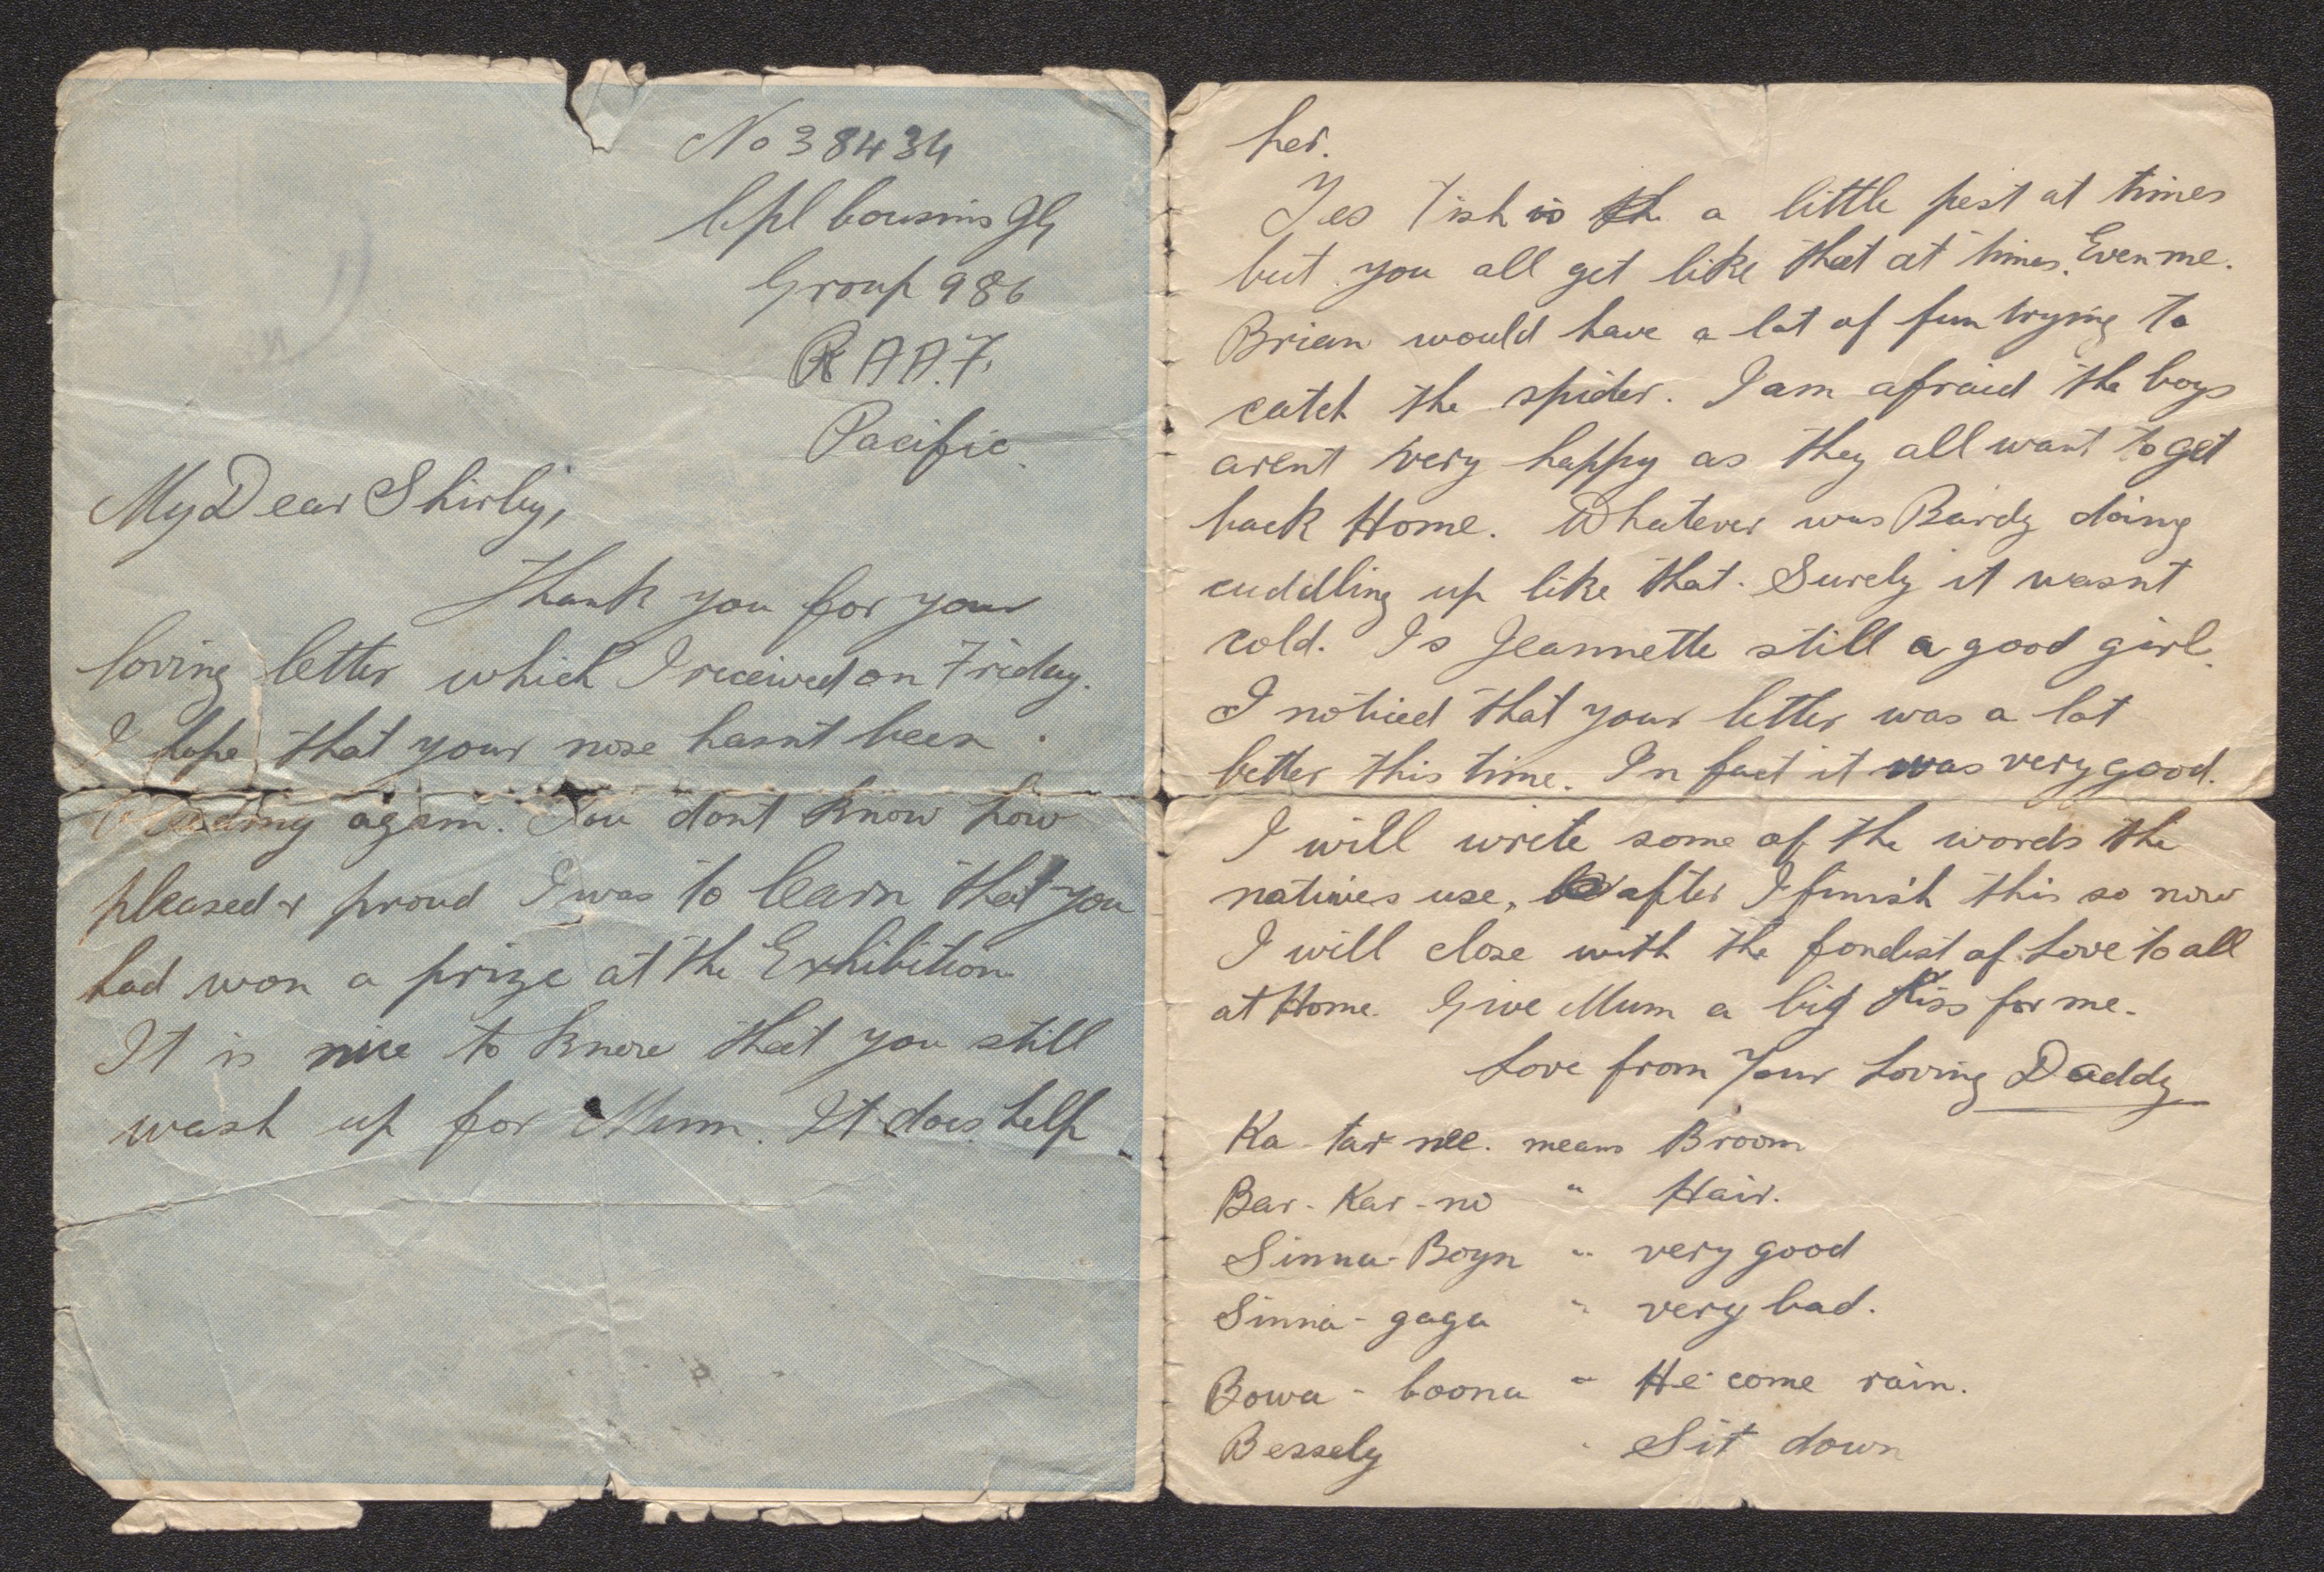 No 38434
Cpl Cousins J G
Group 986
R A A.F.
Pacific.
My Dear Shirley,
Thank you for your
loving letter which I received on Friday.
I hope that your nose hasnt been
again. You dont know how
pleased & proud I was to learn that you
had won a prize at the Exhibition
It is nice to know that you still
wash up for Mum. It does help
her.
Yes Tish is a little pest at times
but you all get like that at times. Even me.
Brian would have a lot of fun trying to
catch the spider. I am afraid the boys
arent very happy as they all want to get
back Home. Whatever was Bardy doing
cuddling up like that. Surely it wasnt
cold. Is Jeannette still a good girl.
I noticed that your letter was a lot
better this time. In fact it was very good.
I will write some of the words the
natives use, after I finish this so now
I will close with the fondest of Love to all
at Home. Give Mum a big Kiss for me.
Love from Your Loving Daddy
Ka - tar nee. means Broom
Bar - Kar - no " Hair.
Sinna - Boyn " very good
Sinna - gaga " very bad.
Bowa - boona " He come rain.
Bessely " Sit down